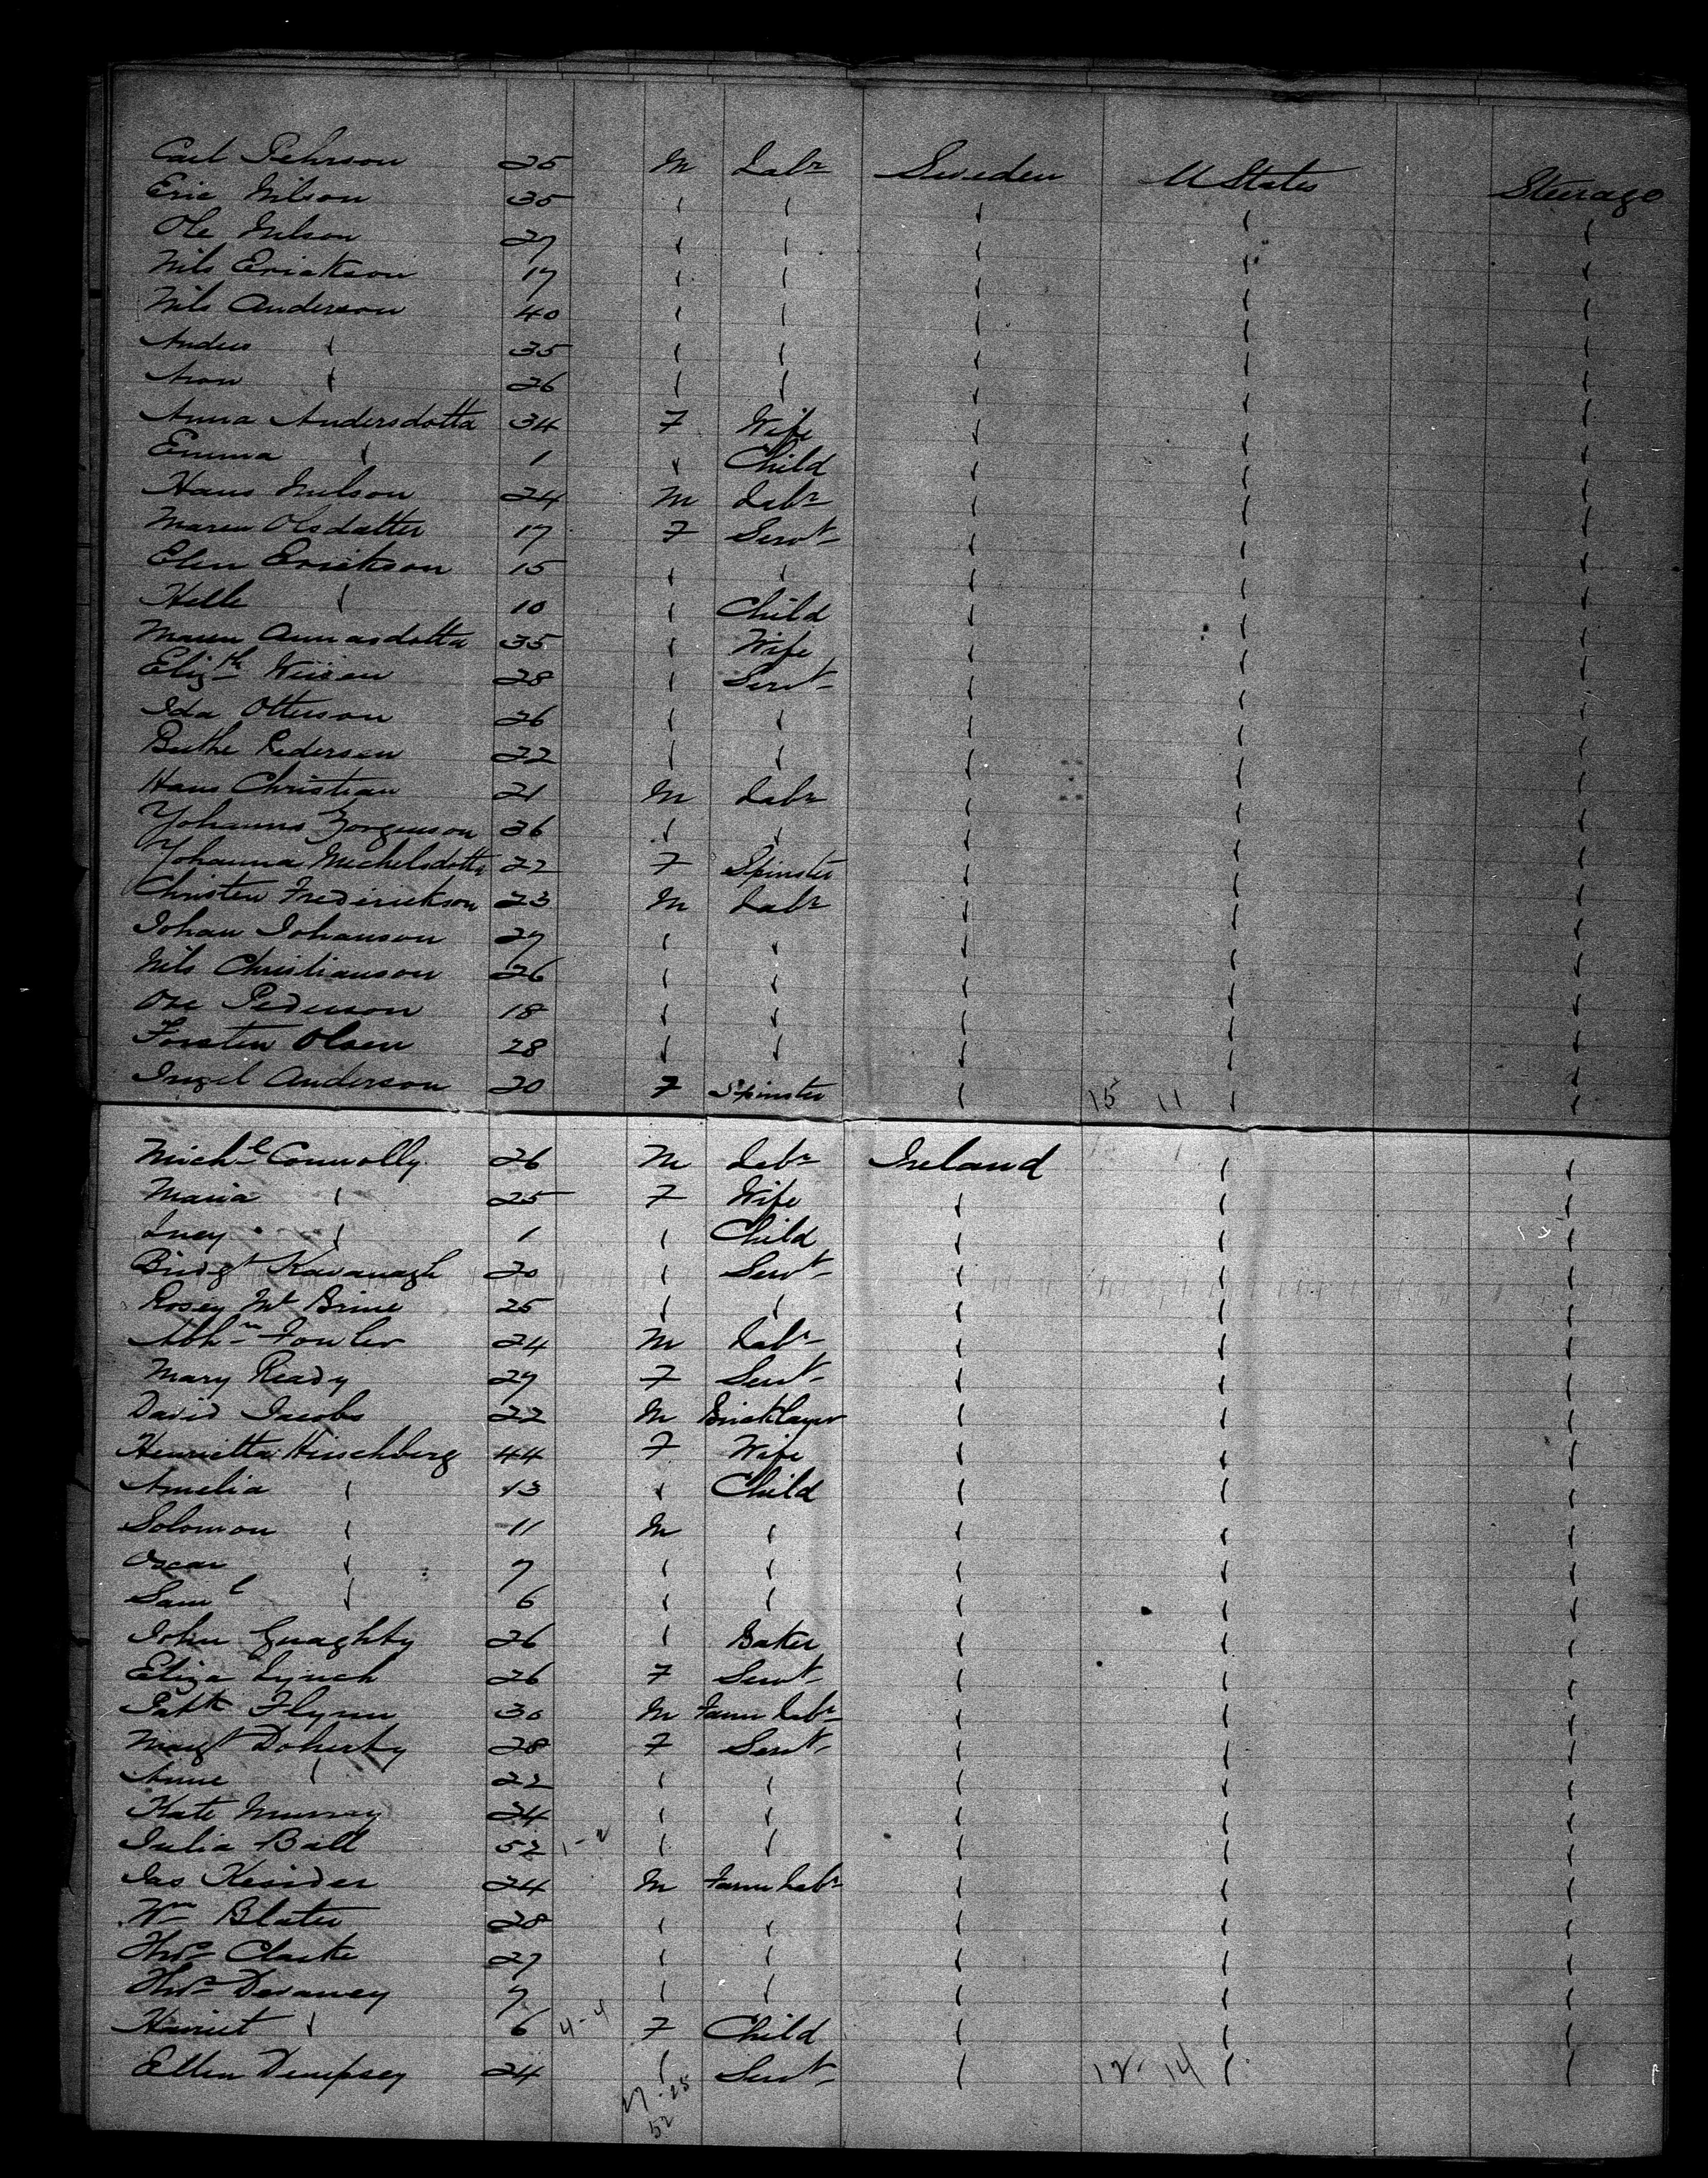 Carl Pehrson 25 M Labr Sweden U States Steerage
Eric Nilson 35 " " " " "
Ole Nilson 27 " " " " "
Nils Erickson 17 " " " " "
Nils Anderson 40 " " " " "
Anders " 35 " " " " "
Aron " 26 " " " " "
Anna Andersdotta 34 F Wife " " "
Emma " 1 " Child " " "
Hans Nilson 24 M Labr " " "
Maren Olsdatter 17 F Servt " " "
Elen Erickson 15 " " " " "
Helle " 10 " Child " " "
Maren 35 " Wife " " "
Elizth 28 " Servt " " "
Ida Otterson 26 " " " " "
Bethe Pedersen 22 " " " " "
Hans Christian 21 M Labr " " "
Yohannes Yorgenson 36 " " " " "
Yohanna Michelsdotta 22 F Spinster " " "
Christen Frederickson 23 M Labr " " "
Johan Johanson 27 " " " " "
Nils Christianson 26 " " " " "
Ove Pederson 18 " " " " "
Forsten Olsen 28 " " " " "
Ingel Anderson 20 F Spinster " 15 11 " "
Michl Connolly 26 M Labr Ireland " "
Maria " 25 F Wife " " "
Lucy " 1 " Child " " "
Bridgt Kavanagh 20 " Servt " " "
Rosey Mc Brine 25 " " " " "
Abhm Fowler 24 M Labr " " "
Mary Ready 27 F Servt " " "
David Jacobs 22 M Bricklayer " " "
Henrietta Hirschberg 44 F Wife " " "
Amelia " 13 " Child " " "
Solomon " 11 M " " " "
Oscar " 7 " " " " "
Saml " 6 " " " " "
John Geraghty 26 " Baker " " "
Eliza Lynch 26 F Servt " " "
Patk Flynn 30 M Farm Labr " " "
Margt Doherty 28 F Servt " " "
Anne " 22 " " " " "
Kate Murray 24 " " " " "
Julia Ball 52 1-2 " " " " "
Jas Kesider 24 M Farm Labr " " "
Wm Blater 28 " " " " "
Thos Clarke 27 " " " " "
Thos Devaney 7 " " " " "
Harriet " 6 4-4 F Child " " "
Ellen Dempsey 24 " Servt " 12 14 " "
27-25
52